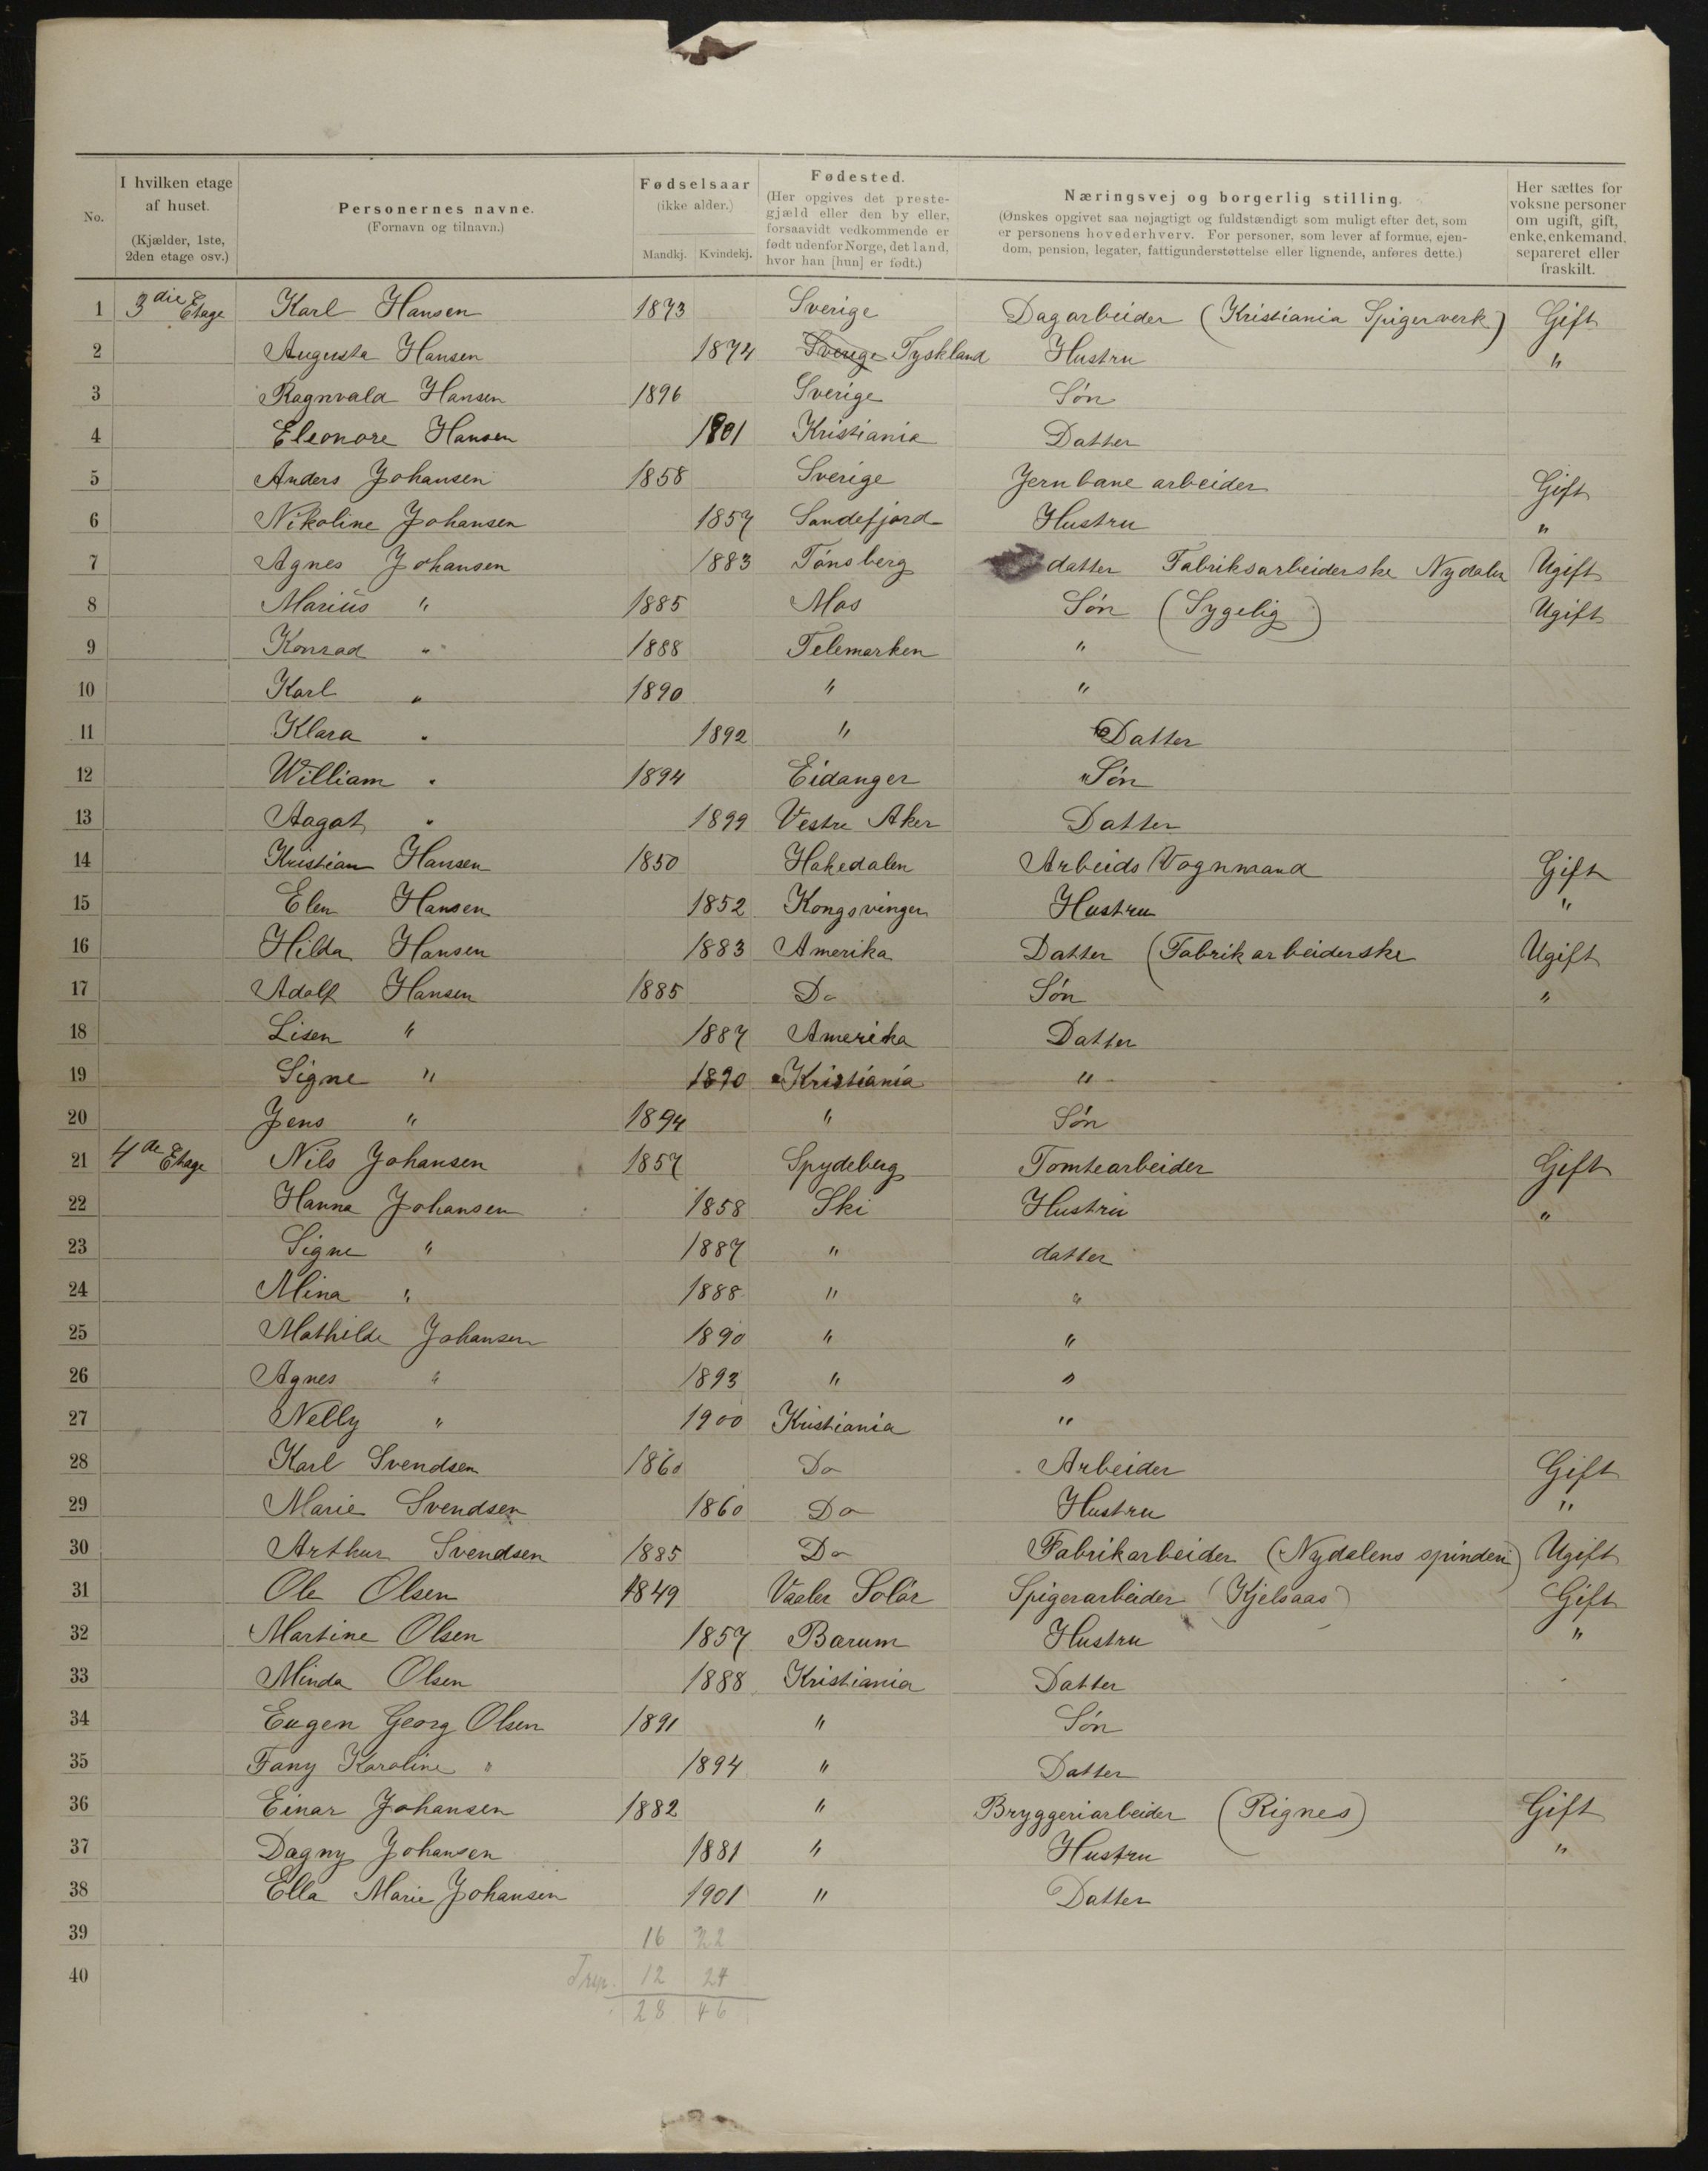 No.
I hvilken etage af huset. (Kjælder, 1ste, 2den etage osv.)
Personernes navne. (Fornavn og tilnavn.)
Fødselsaar (ikke alder.) Mandkj. Kvindekj.
Fødested. (Her opgives det prestegjæld eller den by eller, forsaavidt vedkommende er født udenfor Norge, det land, hvor han [hun] er født.)
Næringsvej og borgerlig stilling. (Ønskes opgivet saa nøjagtigt og fuldstændigt som muligt efter det, som er personens hovederhverv. For personer, som lever af formue, ejendom, pension, legater, fattigunderstøttelse eller lignende, anføres dette.)
Her sættes for voksne personer om ugift, gift, enke, enkemand, separeret eller fraskilt.
1 3die Etage Karl Hansen 1873 Sverige Dagarbeider (Kristiania Spigerverk) Gift
2 Augusta Hansen 1874 Sverige Tyskland Hustru "
3 Ragnvald Hansen 1896 Sverige Søn
4 Eleonore Hansen 1901 Kristiania Datter
5 Anders Johansen 1858 Sverige Jernbane arbeider Gift
6 Nikoline Johansen 1857 Sandefjord Hustru "
7 Agnes Johansen 1883 Tønsberg datter Fabriksarbeiderske Nydalen Ugift
8 Marius " 1885 Mos Søn (Sygelig) Ugift
9 Konrad " 1888 Telemarken "
10 Karl " 1890 " "
11 Klara " 1892 " Datter
12 William " 1894 Eidanger Søn
13 Aagot " 1899 Vestre Aker Datter
14 Kristian Hansen 1850 Hakedalen Arbeids Vognmand Gift
15 Elen Hansen 1852 Kongsvinger Hustru "
16 Hilda Hansen 1883 Amerika Datter (Fabrikarbeiderske Ugift
17 Adolf Hansen 1885 Do Søn "
18 Lisen " 1887 Amerika Datter
19 Signe " 1890 Kristiania "
20 Jens " 1894 " Søn
21 4de Etage Nils Johansen 1857 Spydeberg Tomtearbeider Gift
22 Hanna Johansen 1858 Ski Hustru "
23 Signe " 1887 " datter
24 Mina " 1888 " "
25 Mathilde Johansen 1890 " "
26 Agnes " 1893 " "
27 Nelly " 1900 Kristiania "
28 Karl Svendsen 1860 Do Arbeider Gift
29 Marie Svendsen 1860 Do Hustru "
30 Arthur Svendsen 1885 Do Fabrikarbeider (Nydalens spinderi) Ugift
31 Ole Olsen 1849 Vaaler Solør Spigerarbeider (Kjelsaas) Gift
32 Martine Olsen 1857 Bærum Hustru "
33 Minda Olsen 1888 Kristiania Datter
34 Eugen Georg Olsen 1891 " Søn
35 Fany Karoline " 1894 " Datter
36 Einar Johansen 1882 " Bryggeriarbeider (Rignes) Gift
37 Dagny Johansen 1881 " Hustru "
38 Ella Marie Johansen 1901 " Datter
39 16 22
40 12 24
28 46